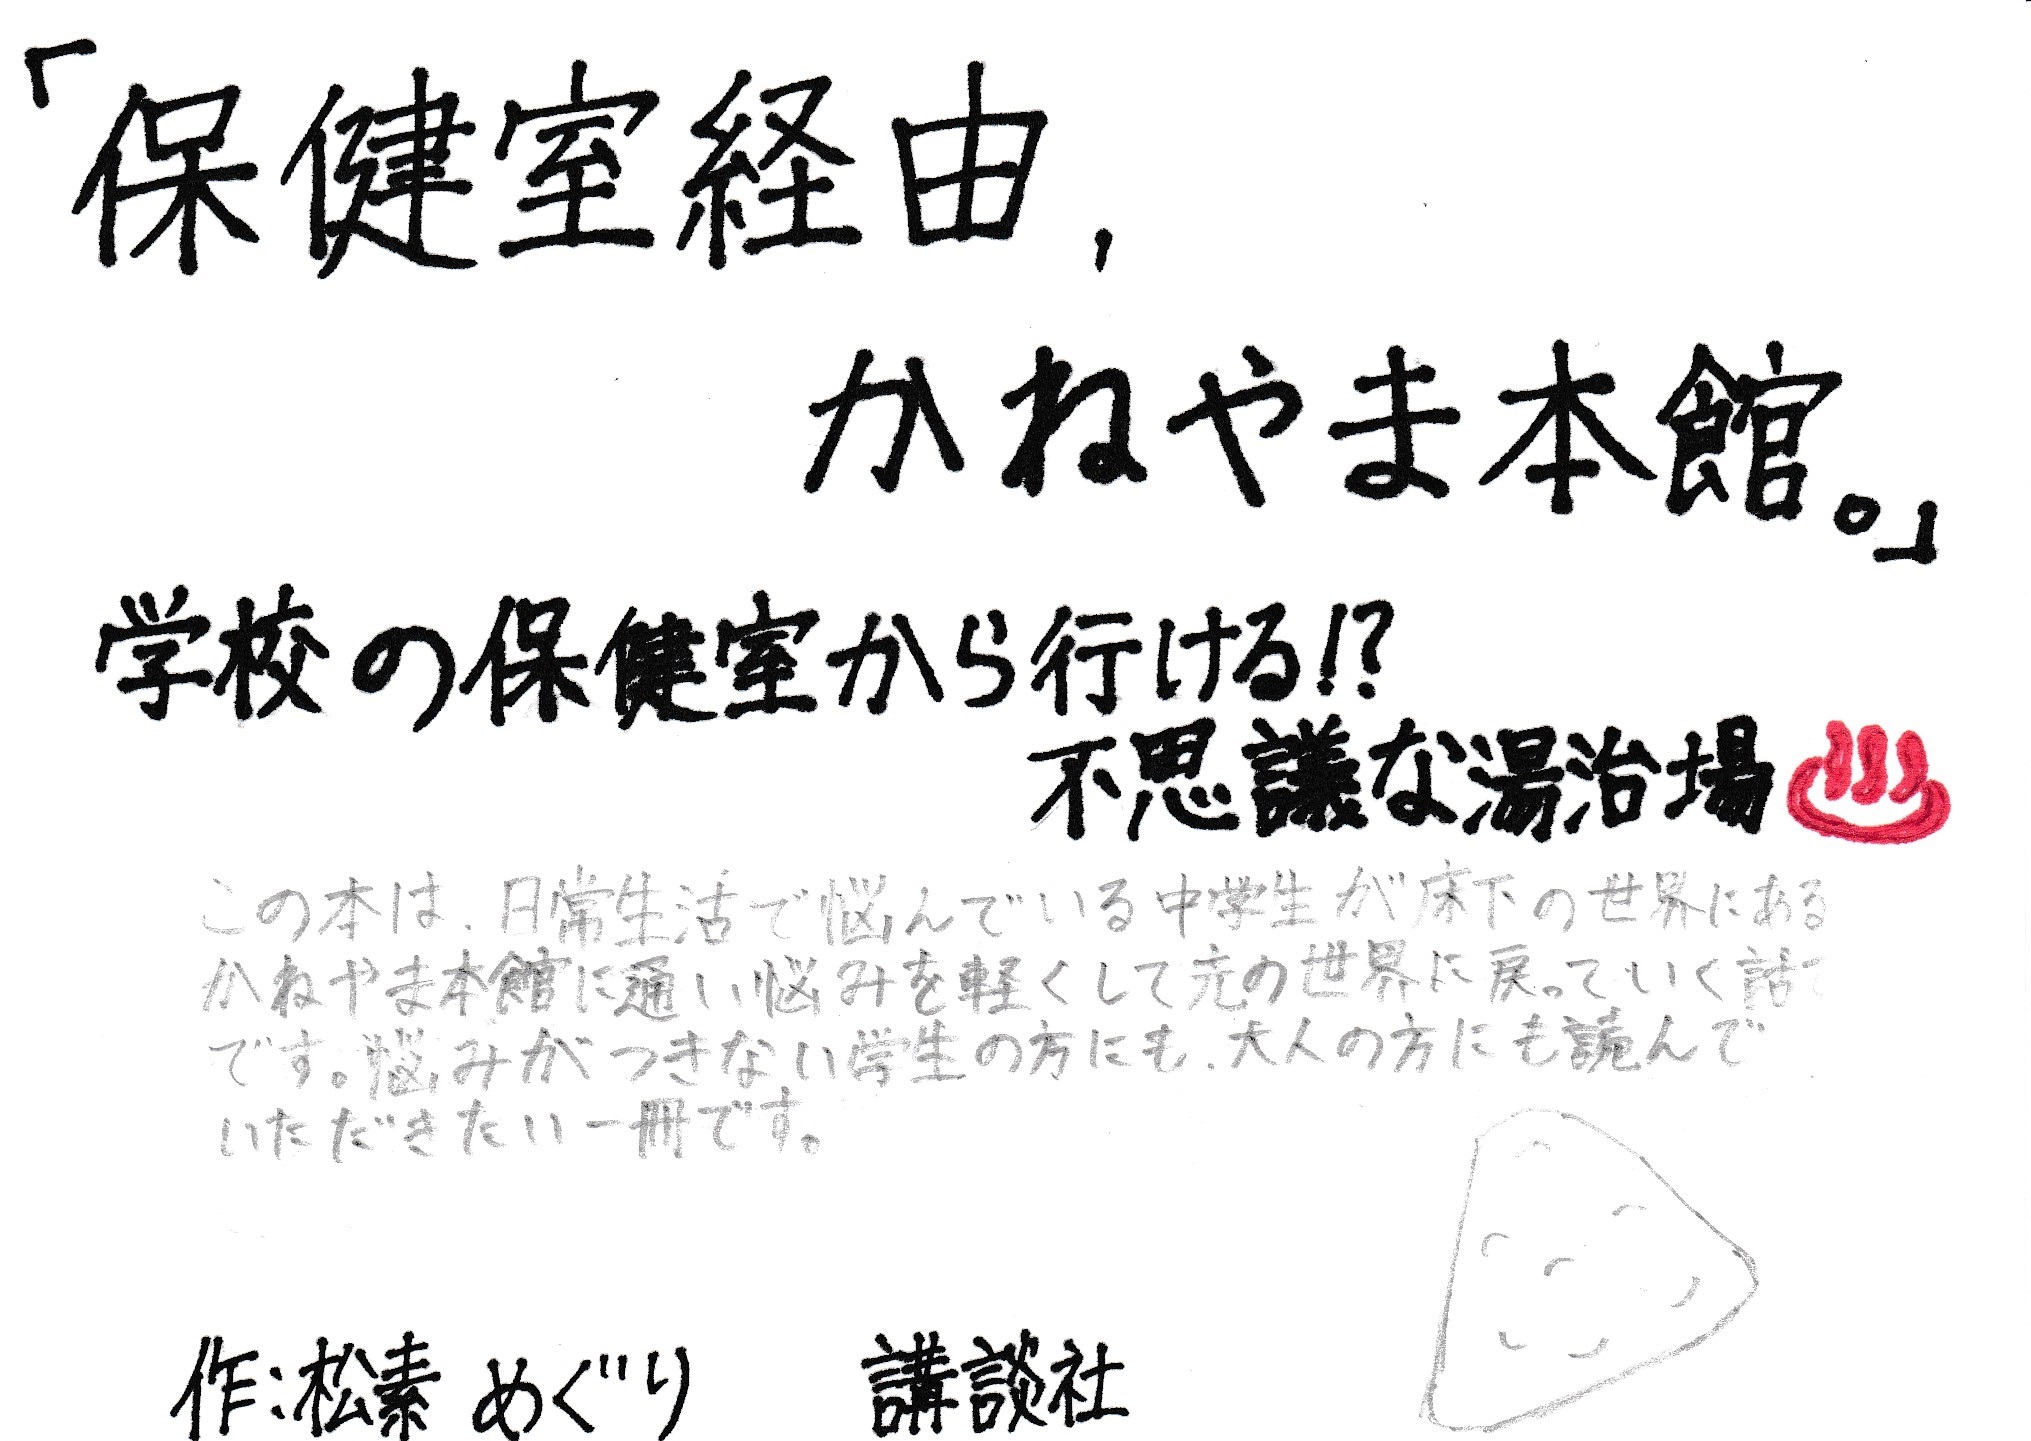 「保健室経由、
かねやま本館。」
学校の保健室から行ける!?
不思議な湯治場♨
この本は、日常生活で悩んでいる中学生が床下の世界にある
かねやま本館に通い悩みを軽くして元の世界に戻っていく話で
です。悩みがつきない学生の方にも、大人の方にも読んで
いただきたい一冊です。
作:松素めぐり 講談社